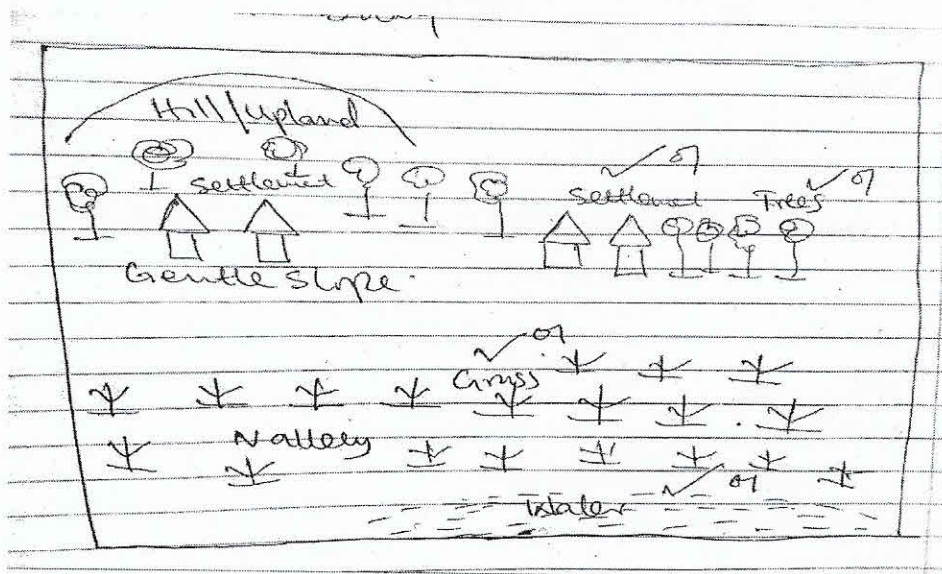 Hill/Upland
✓ 01
Settlemet
Settlemet
✓ 01
Trees
Gentle Slope.
✓ 01
Grass
Valley
✓ 01
Water